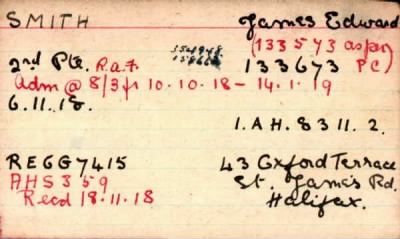 SMITH James Edward
(133573 as per
2nd Pte. R.a.F. 133673 PC)
Adm @ 8/3 10.10.18 — 14.1.19
6.11.18.
1.A.H. 8311.2.
REGG7415 43 Oxford Terrace
AHS359 St. James Rd.
Recd 18.11.18 Halifax.